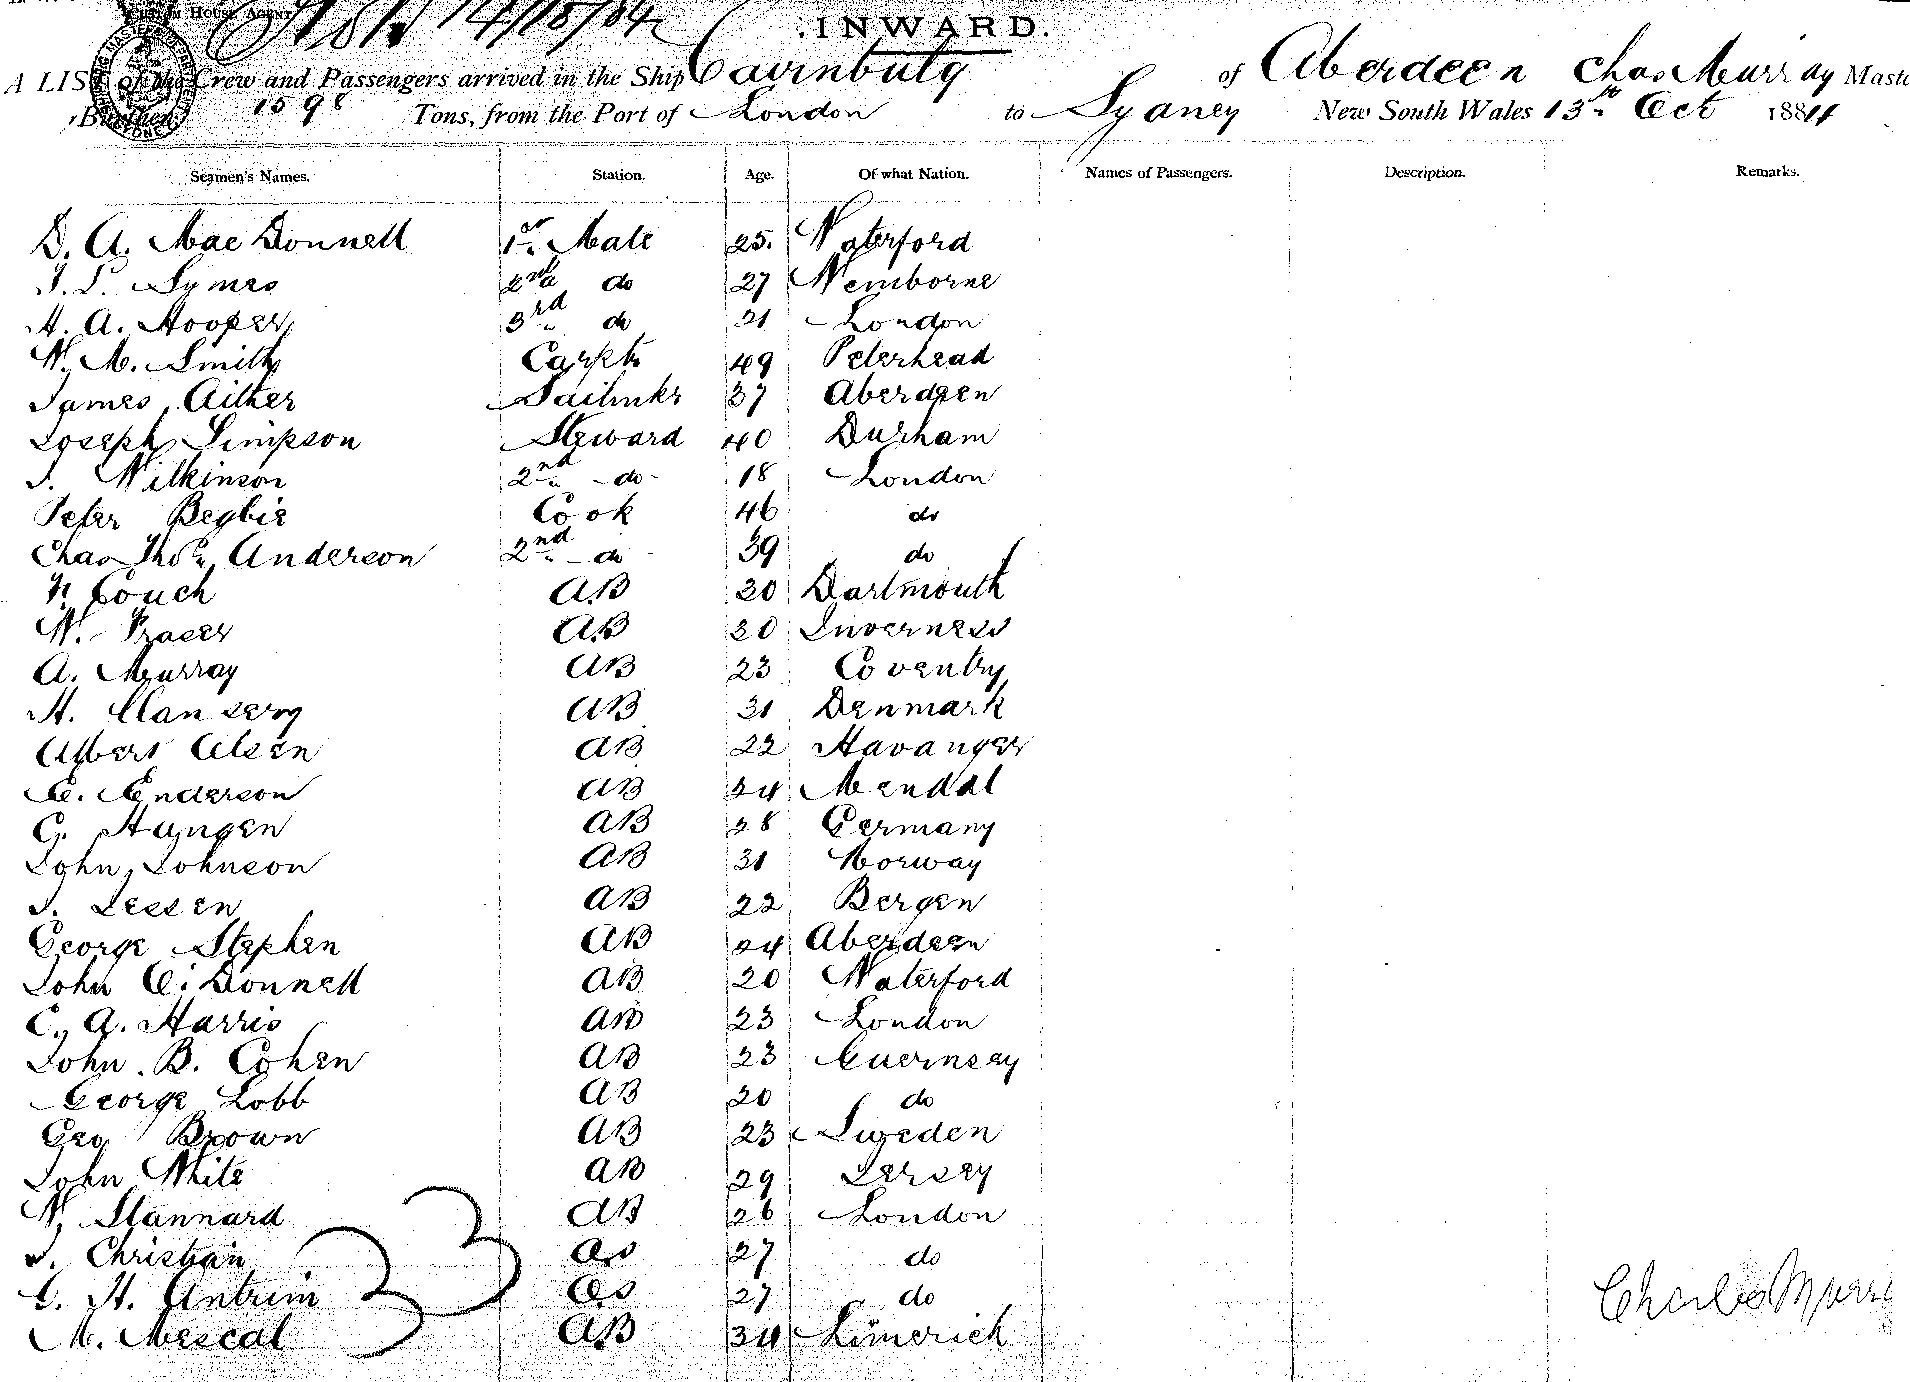 Custom House Agent
14/10/84
INWARD.
A LIST of the Crew and Passengers arrived in the Ship Cairnbulg of Aberdeen Chas Murray Master
Burthen 1598 Tons, from the Port of London to Sydney New South Wales 13th Oct 1884
Seamen's Names. Station. Age. Of what Nation. Names of Passengers. Description. Remarks.
D. A. Mac Donnell 1st Mate 25 Waterford
Symes 2nd do 27 Wemborne
H. A. Hooper 3rd do 21 London
W. M. Smith Carptr 49 Peterhead
James Aitken Sailmkr 37 Aberdeen
Joseph Simpson Steward 40 Durham
J. Wilkinson 2nd - do - 18 London
Peter Begbie Cook 46 do
Chas Thos Anderson 2nd - do - 39 do
Couch AB 20 Dartmouth
W. Fraser AB 30 Inverness
A. Murray AB 23 Coventry
H. AB 31 Denmark
Albert Olsen AB 22 Stavanger
E. Enderson AB 24 Mendal
C. Haugen AB 28 Germany
John Johnson AB 31 Norway
J. Jessen AB 22 Bergen
George Stephen AB 24 Aberdeen
John O'Donnell AB 20 Waterford
C. A. Harris AB 23 London
John B. Cohen AB 23 Guernsey
George Lobb AB 20 do
Geo Brown AB 23 Sweden
John White AB 29 Jersey
W. Stannard AB 26 London
J. Christian OS 27 do
G. H. Antrim OS 27 do
M. Mescal AB 34 Limerick
33
Charles Murray